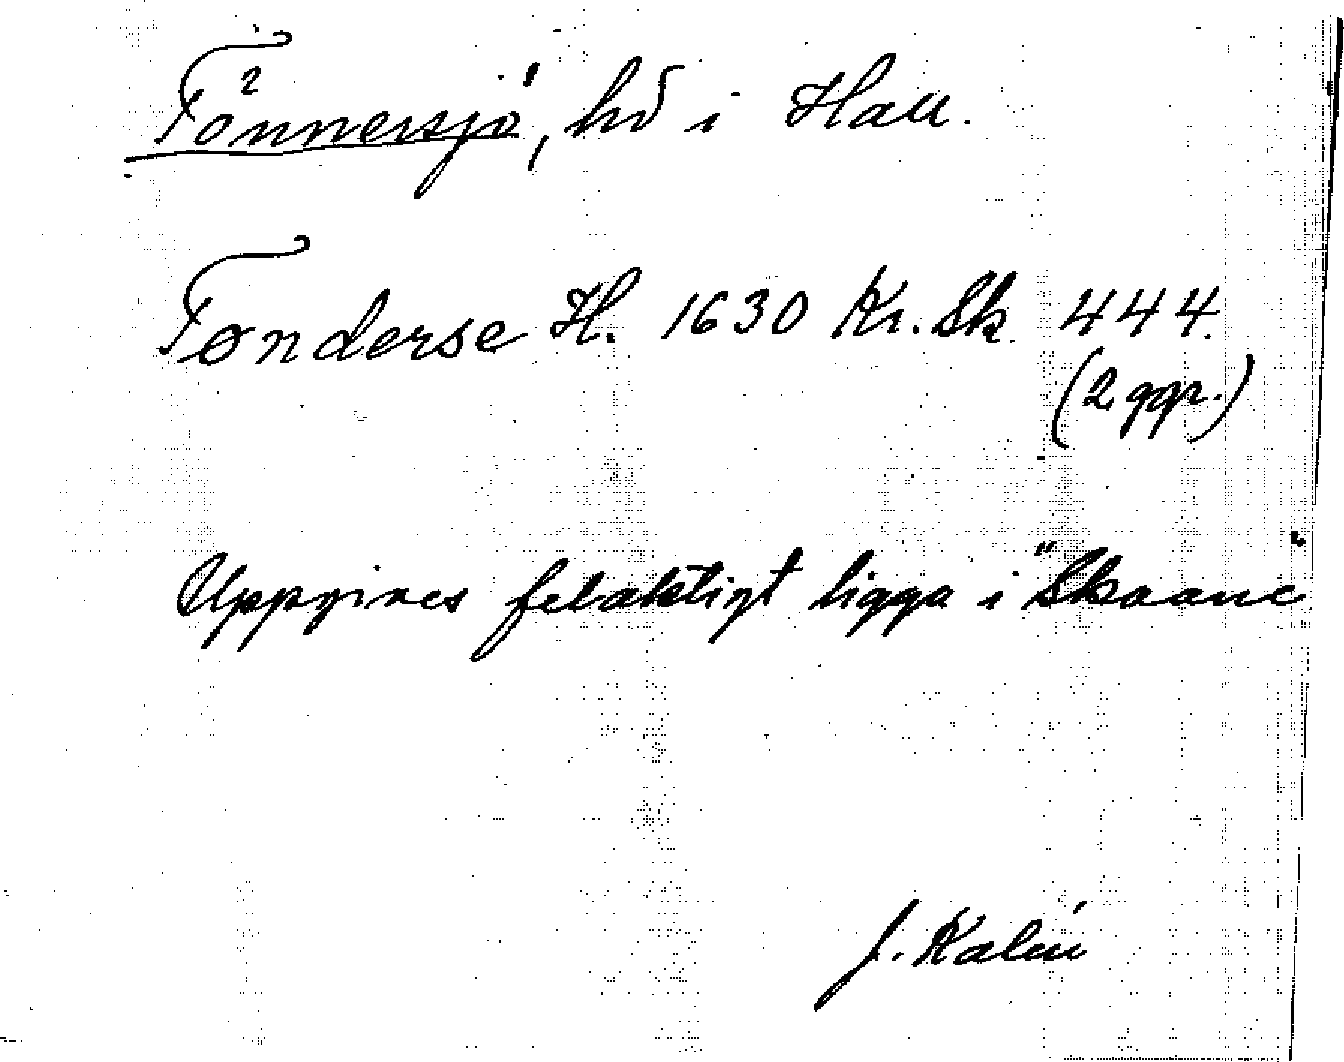 Tönnersjö, hd i Hall.
Tønderse H. 1630 Kr. Sk. 444.
(2 ggr.)
Uppgives felaktigt ligga i "Skaane"
J. Kalén